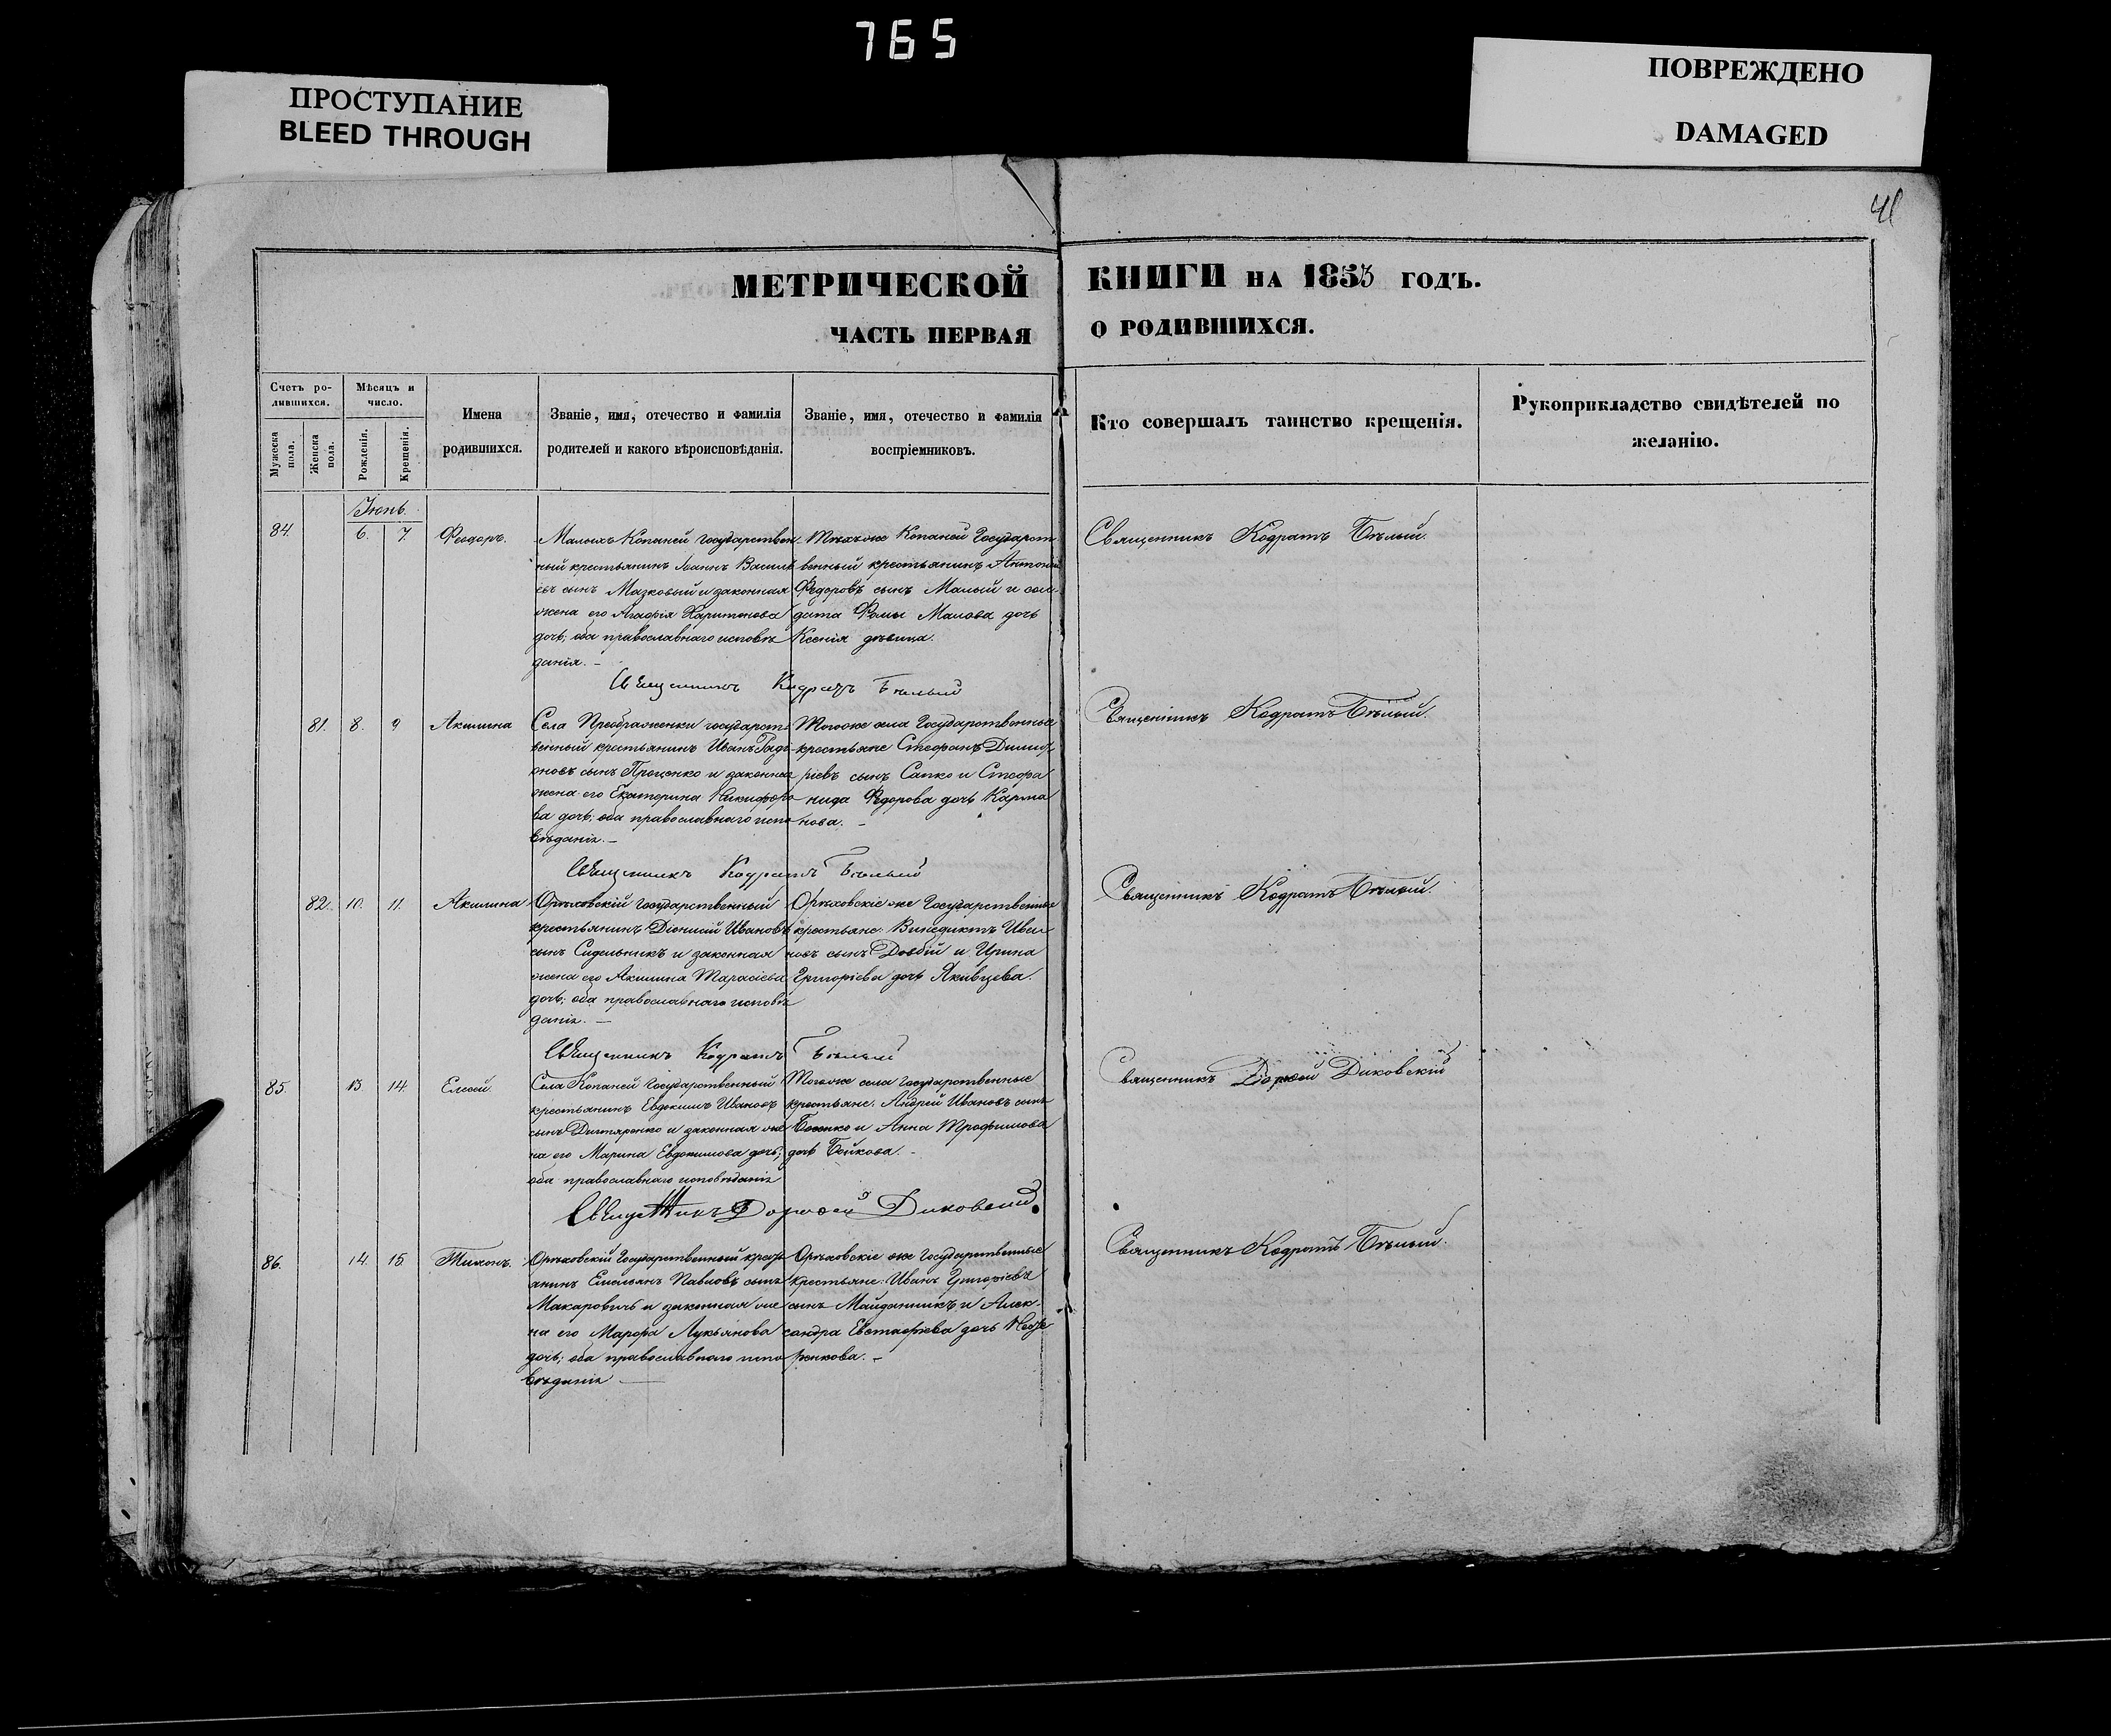 765
ПРОСТУПАНИЕ
BLEED THROUGH
ПОВРЕЖДЕНО
DAMAGED
41
МЕТРИЧЕСКОЙ КНИГИ НА 1853 ГОДЪ.
ЧАСТЬ ПЕРВАЯ О РОДИВШИХСЯ.
Счетъ ро-
дившихся.
Мужеска
пола.
Женска
пола.
Мѣсяцъ и
число.
Рожденія.
Крещенія.
Имена
родившихся.
Званіе, имя, отечество и фамилія
родителей и какого вѣроисповѣданія.
Званіе, имя, отечество и фамилія
воспріемниковъ.
Кто совершалъ таинство крещенія.
Рукоприкладство свидѣтелей по
желанію.
Іюнь.
84. 6. 7. Феодоръ.
Малыхъ Копаней государствен
ный крестьянинъ Іоаннъ Василь
евъ сынъ Мазковый и законная
жена его Агафія Харитонова
дочь; оба православнаго исповѣ
данія. –
Тѣхъже Копаней Государст
венный крестьянинъ Антоній
Федоровъ сынъ Малый и сол-
дата Фомы Малова дочь
Ксенія дѣвица.
Священникъ Кодратъ Бѣлый.
Священникъ Кодратъ Бѣлый
81. 8. 9 Акилина
Села Преображенки государст
венный крестьянинъ Иванъ Раді-
оновъ сынъ Проценко и законная
жена его Екатерина Никифоро
ва дочь; оба православнаго испо
вѣданія. –
Тогоже села Государственные
крестьяне Стефанъ Димит
ріевъ сынъ Сапко и Стефа
нида Федорова дочь Карма
нова. –
Священникъ Кодратъ Бѣлый.
Священникъ Кодратъ Бѣлый
82. 10. 11. Акилина
Орѣховскій государственный
крестьянинъ Діонисій Ивановъ
сынъ Сидельникъ и законная
жена его Акилина Тарасіева
дочь; оба православнаго исповѣ
данія. –
Орѣховскіе же Государственные
крестьяне: Винедиктъ Ива
новъ сынъ Довбій и Ирина
Григоріева дочь Якивцева.
Священникъ Кодратъ Бѣлый.
Священникъ Кодратъ Бѣлый
85. 13 14. Елисей.
Села Копаней Государственный
крестьянинъ Евдокимъ Ивановъ
сынъ Дигтяренко и законная же
на его Марина Евдокимова дочь;
оба православнаго исповѣданія
Тогоже села государственные
крестьяне: Андрей Ивановъ сынъ
и Анна Трофимова
дочь Бойкова. –
Священникъ Дорофей Диковскій
Священникъ Дорофей Диковскій
86. 14. 15. Тихонъ.
Орѣховскій Государственный кресть
янинъ Емельянъ Павловъ сынъ
Макаровичъ и законная же
на его Марфа Лукьянова
дочь; оба православнаго испо
вѣданія –
Орѣховскіе же Государственные
крестьяне: Иванъ Григоріевъ
сынъ Майданникъ и Алек-
сандра Евстафіева дочь
Священникъ Кодратъ Бѣлый.